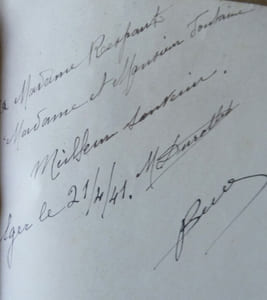 a Madame Respaut
Madame et Monsieur Fontaine
Meilleur souvenir.
Alger le 21/4/41.